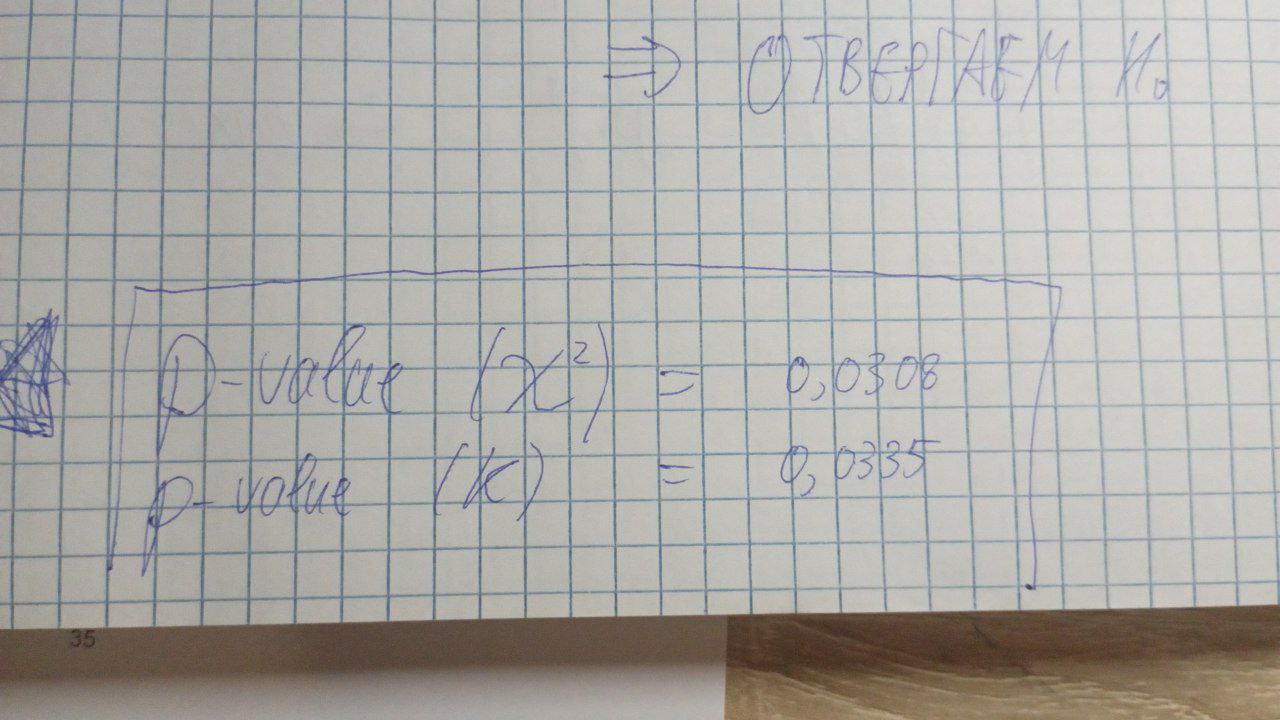 ⇒ ОТВЕРГАЕМ H₀
p-value (χ²) = 0,0308
p-value (k) = 0,0335
35